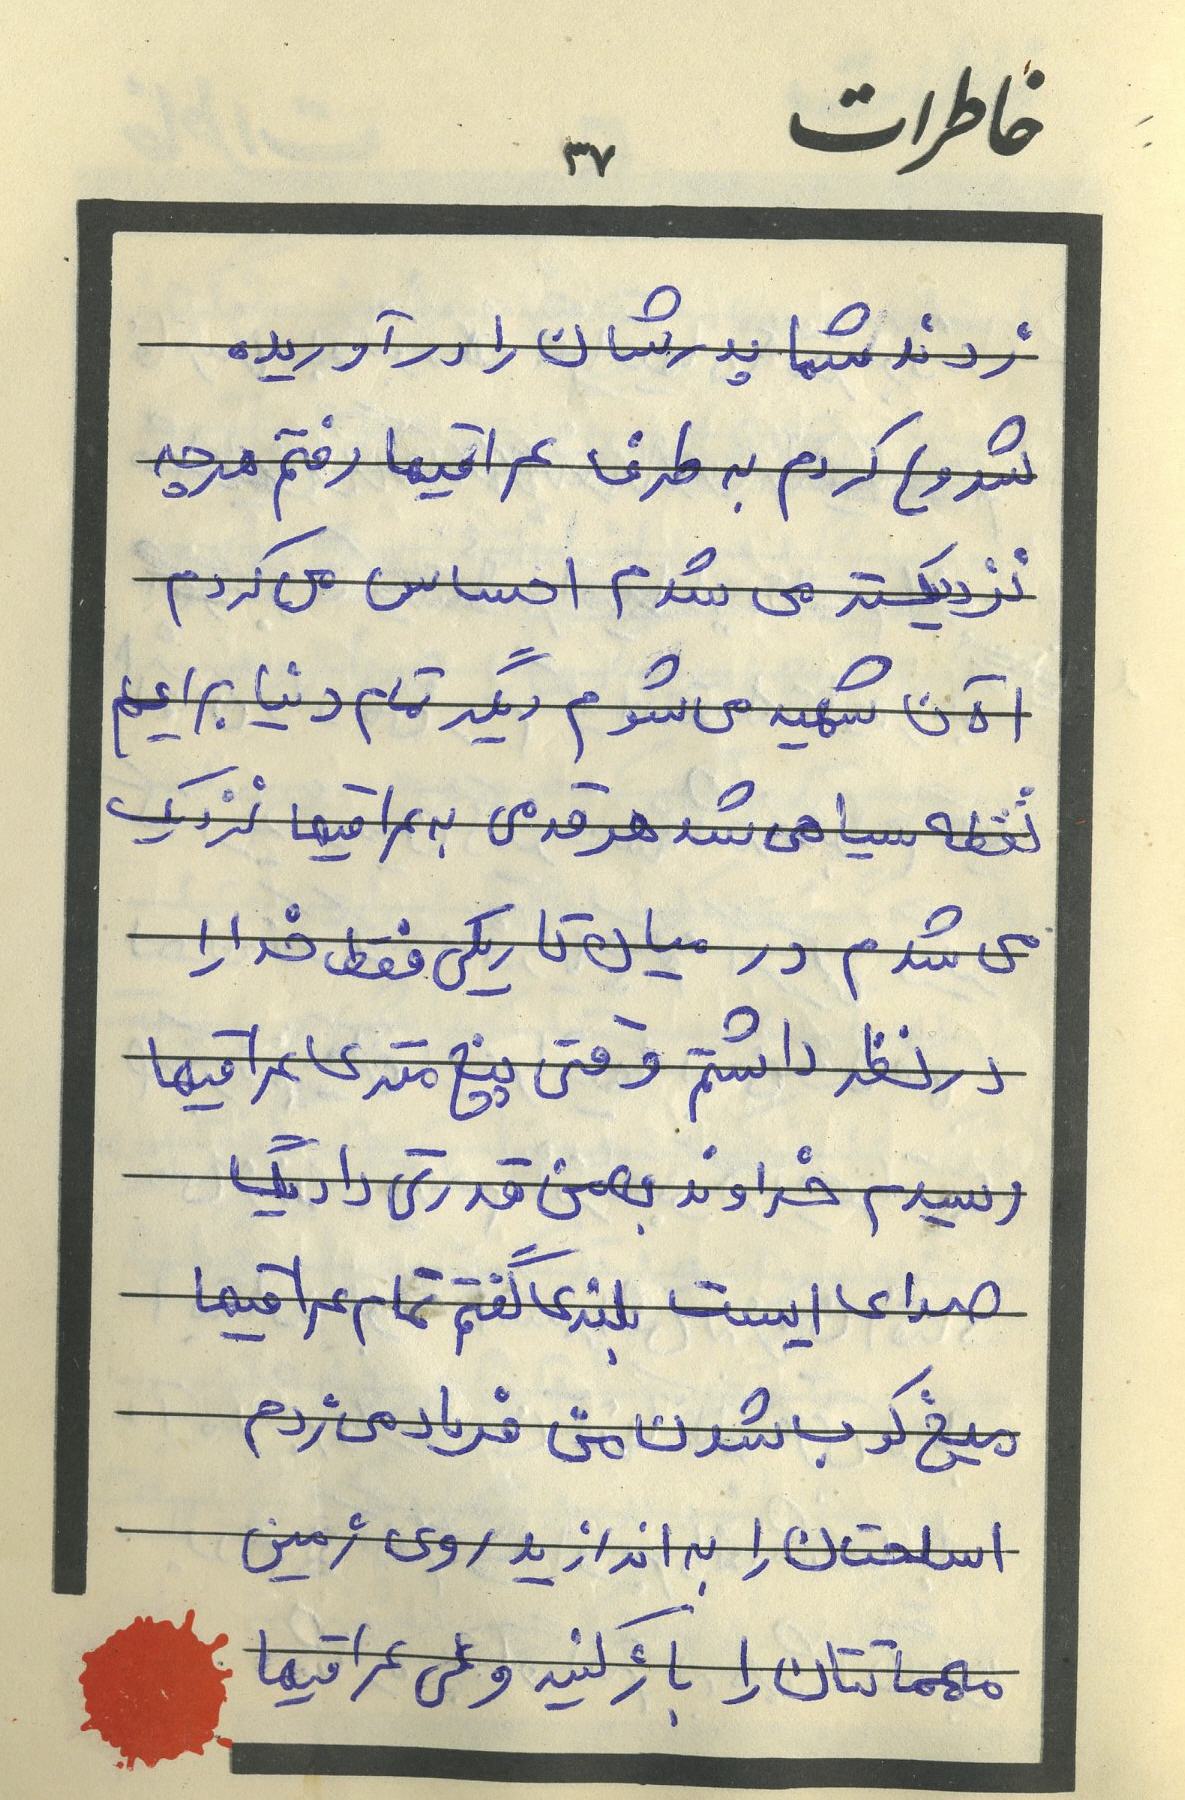 خاطرات
۳۷
زدند شما پدرشان را در آوریده
شروع کردم به طرف عراقیها رفتم هرچه
نزدیکتر می شدم احساس می کردم
الآن شهید می شوم دیگر تمام دنیا برایم
نقطه سیاهی شد هر قدمی به عراقیها نزدیک
می شدم در میان تاریکی فقط خدا را
در نظر داشتم وقتی پنج متری عراقیها
رسیدم خداوند بهمن قدرتی داد یک با
صدای ایست بلندی گفتم تمام عراقیها
میخ کوب شدن من فریاد می زدم
اسلحتان را به اندازید روی زمین
مهماتتان را باز کنید ولی عراقیها